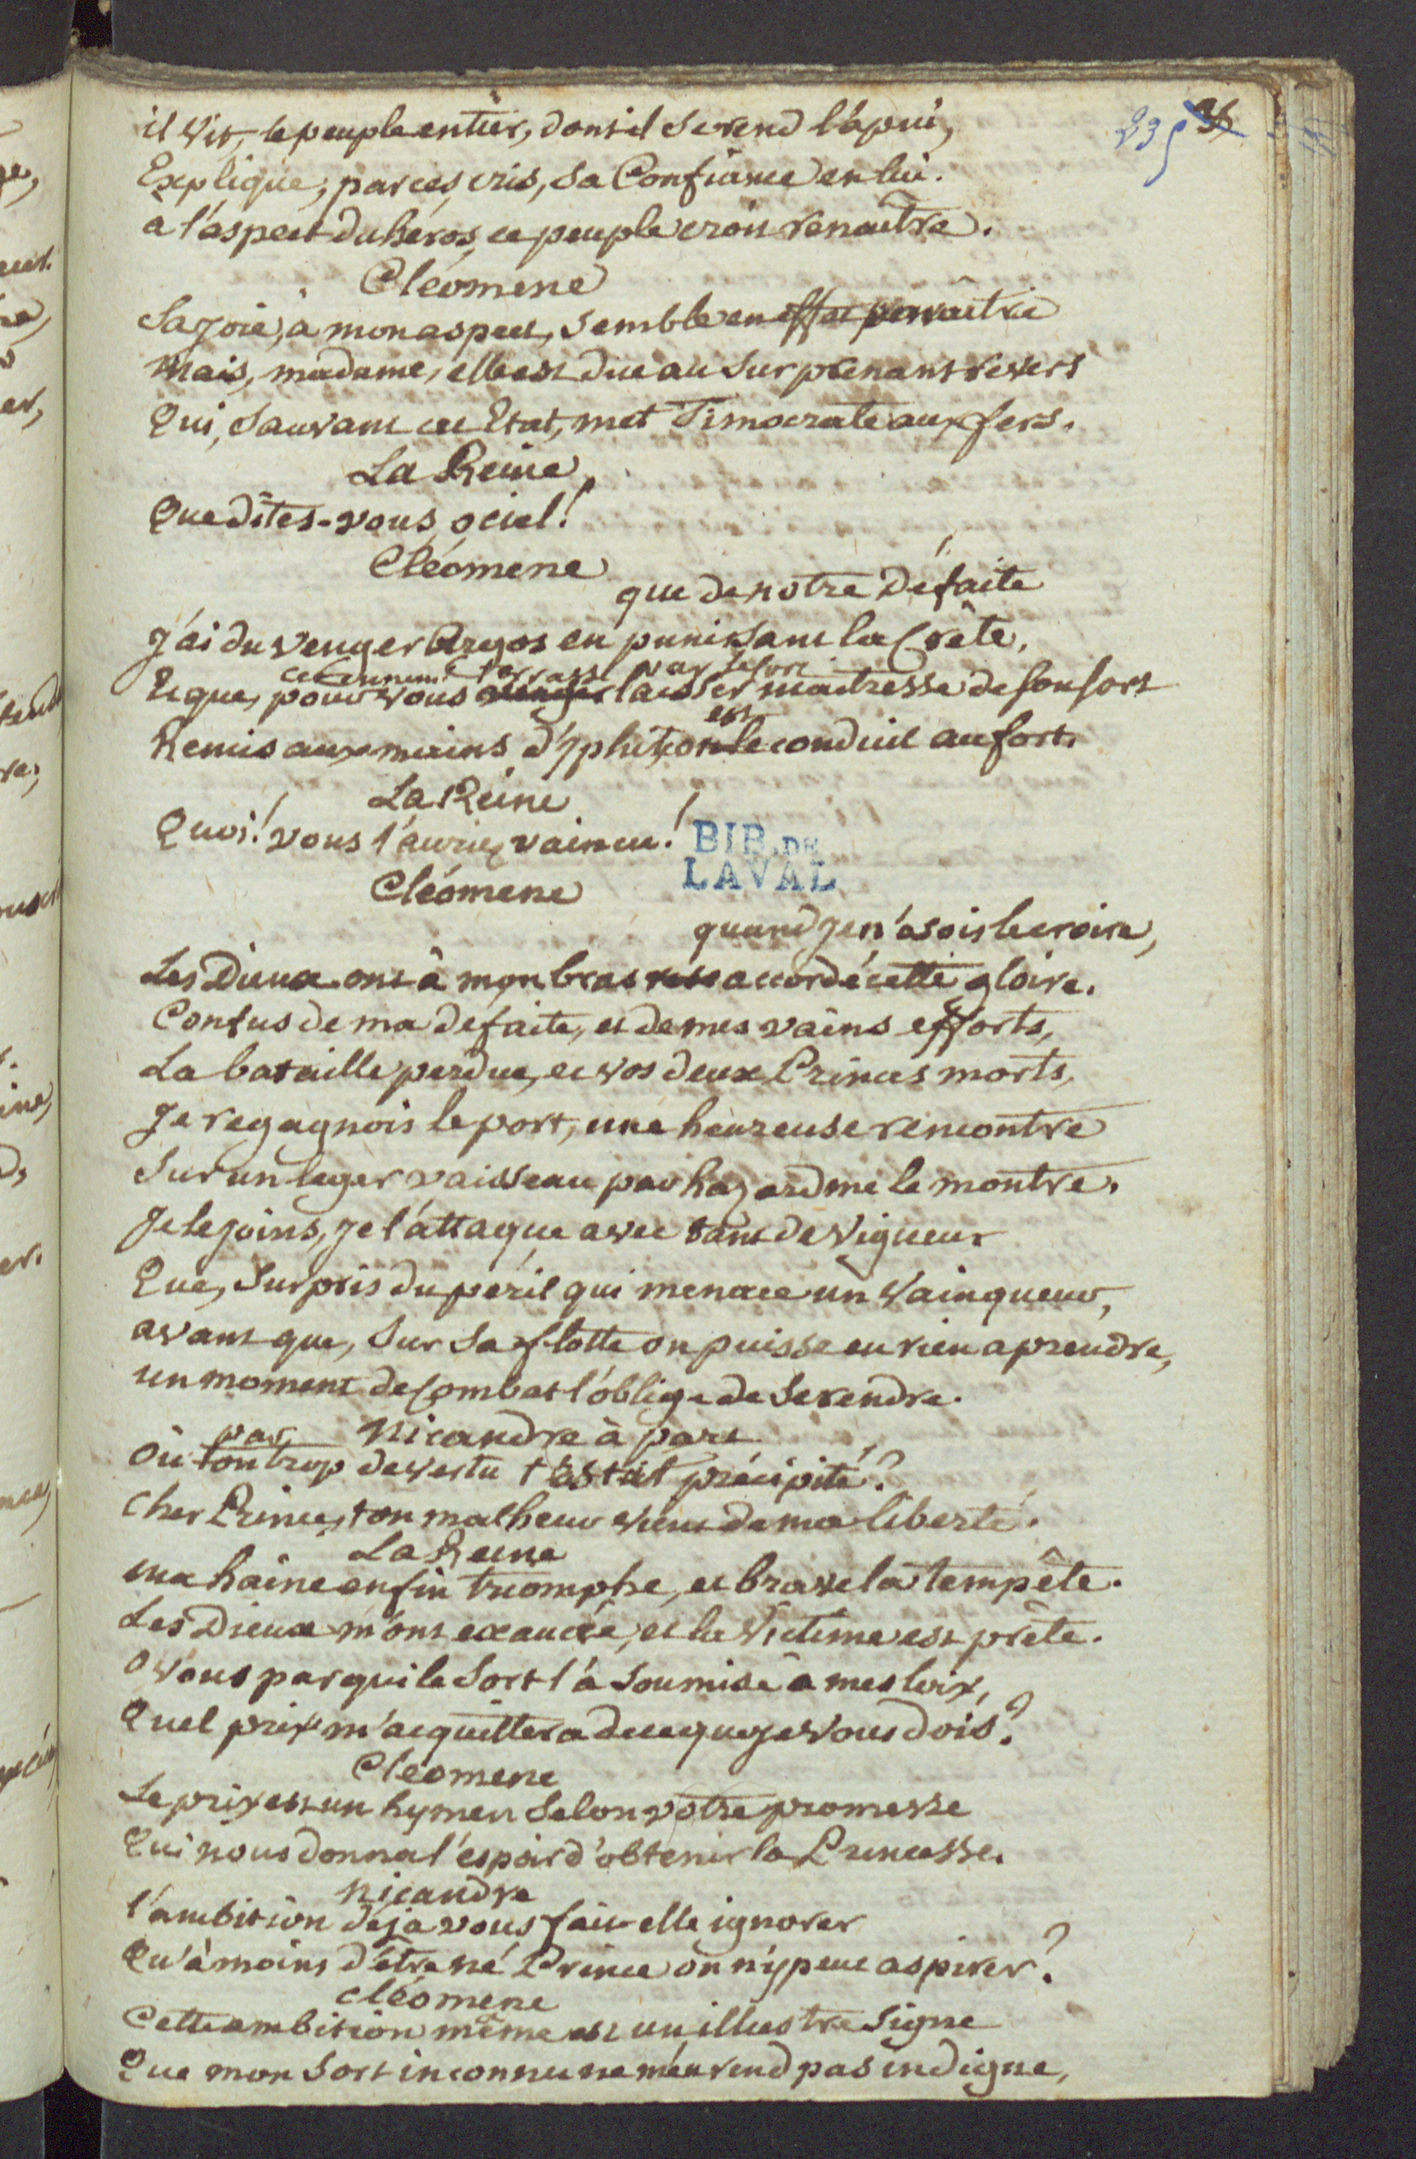 235 31
il vit, le peuple entier, dont il se rend l'apui,
Explique, par ces cris, sa Confiance en lui.
a l'aspect du héros, ce peuple croit renaître.
Cléomene
Sa joie, à mon aspect, semble en effet
Mais, madame, elle est due au surprenant revers
Qui, sauvant cet Etat, met Timocrate aux fers.
La Reine
Que dîtes-vous, ô ciel!
Cléomene
que de notre défaite
J'ai du venger Argos en punissant la Crête,
cet Ennemi terrassé par
Et que, pour vous laisser maitresse de son sort
est
Remis aux mains d'yphite, on le conduit au fort.
La Reine
Quoi! vous l'auriez vaincu!
BIB. DE
LAVAL
Cléomene
quand je n'osois le croire,
Les Dieux ont à mon bras accordé cette gloire.
Confus de ma defaite, et de mes vains efforts,
La bataille perdue, et vos deux Princes morts,
Je regagnois le port, une heureuse rencontre
Sur un leger vaisseau par hazard me le montre.
Je le joins, je l'attaque avec tant de vigueur
Que, surpris du péril qui menace un vainqueur,
avant que, sur sa flotte on puisse en rien aprendre,
un moment de Combat l'oblige de se rendre.
Nicandre à part
par
Où ton trop de vertu t'est précipité?
Cher Prince, ton malheur vient de ma liberté.
La Reine
Ma haine enfin triomphe, et brave la tempête.
Les Dieux m'ont exaucée, et la Victime est prête.
O vous par qui le Sort l'a soumise à mes loix,
Quel prix m'acquittera de ce que je vous dois?
Cleomene
Le prix est un hymen selon votre promesse
Qui nous donna l'espoir d'obtenir la Princesse.
Nicandre
l'ambition déja vous fait elle ignorer
Qu'à moins d'être né Prince on n'y peut aspirer?
cléomene
Cette ambition même est un illustre signe
Que mon Sort inconnu ne m'en rend pas indigne,